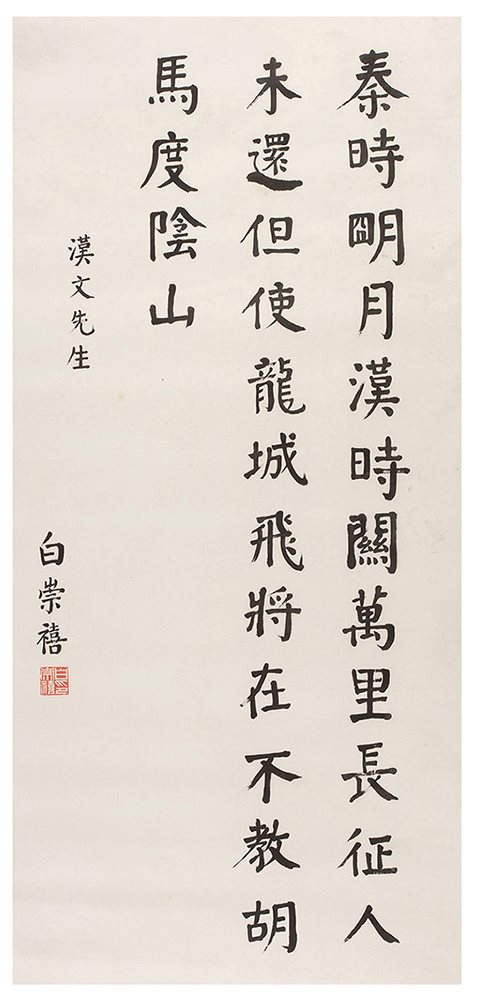 秦時朙月漢時關萬里長征人
未還但使龍城飛將在不教胡
馬度陰山
漢文先生
白崇禧